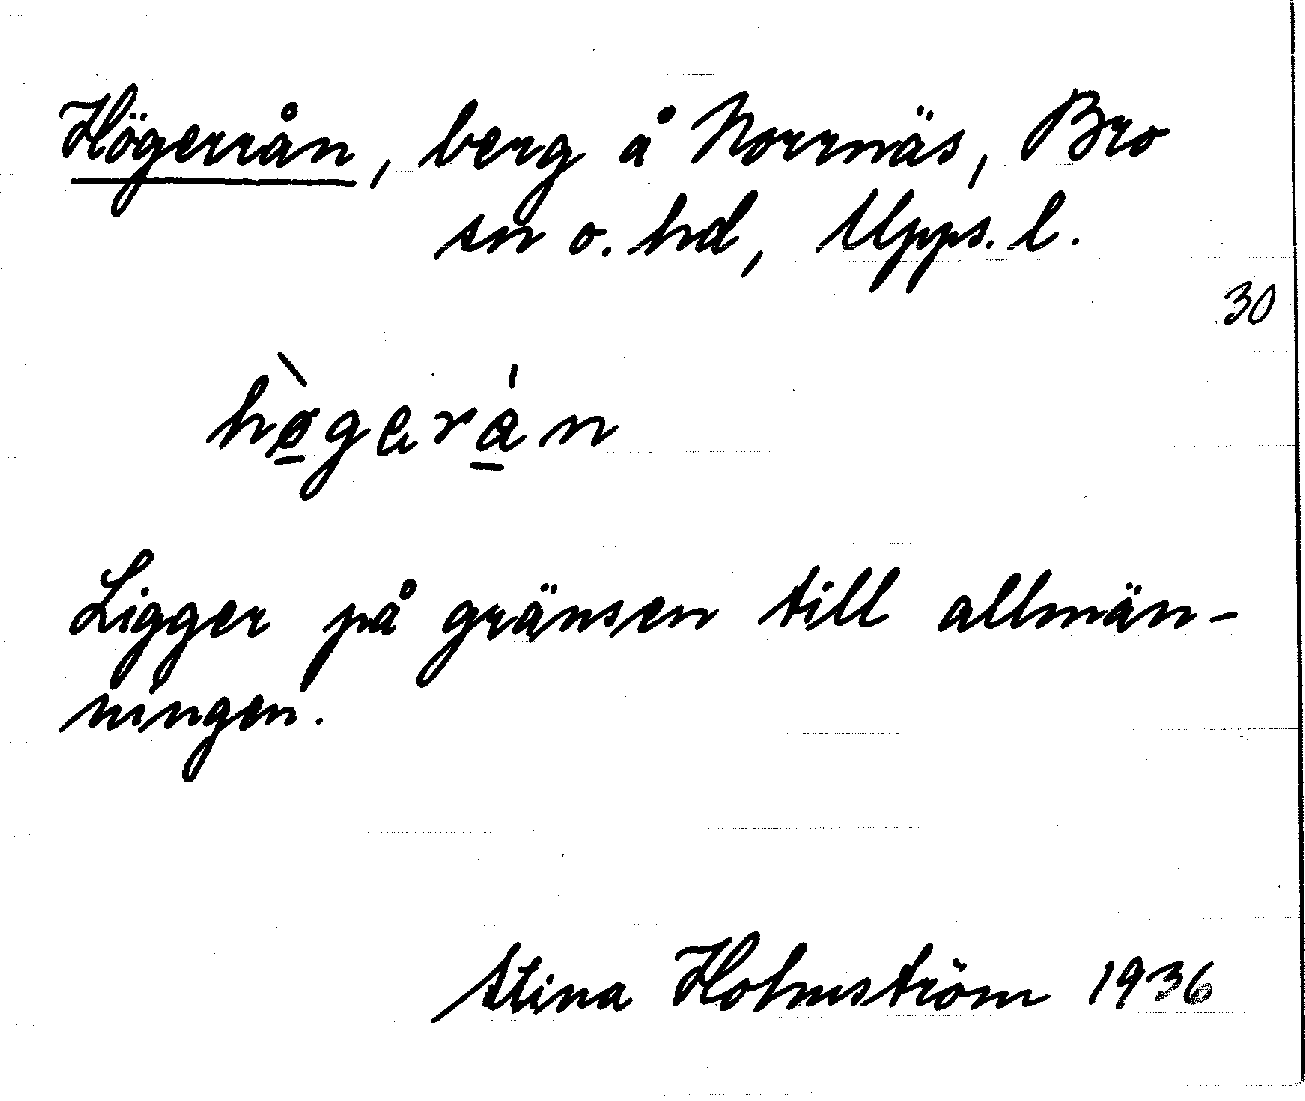 Högerrån, berg å Norrnäs, Bro
sn o. hd, Upps. l.
30
hø̱̀gerǻ̱n
Ligger på gränsen till allmän-
ningen.
Stina Holmström 1936